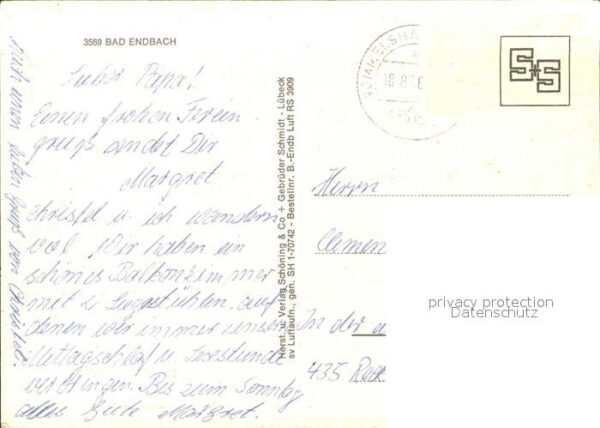 3569 BAD ENDBACH
Lieber Papa!
Einen frohen Ferien-
gruß sendet Dir
Margret
Christel u. ich wandern
viel. Wir haben ein
schönes Balkonzimmer
mit 2 Liegestühlen, auf
denen wir immer unser
Mittagschlaf u. Lesestunde
verbringen. Bis zum Sonntag
alles Gute Margret.
Auch einen lieben Gruß von Christel.
Herst. u. Verlag Schöning & Co + Gebrüder Schmidt - Lübeck
sv Luftaufn., gen. SH 1-70742 - Bestellnr. B.-Endb Luft RS 3909
S+S
Herrn
Clemen
In der
435 Reck
privacy protection
Datenschutz